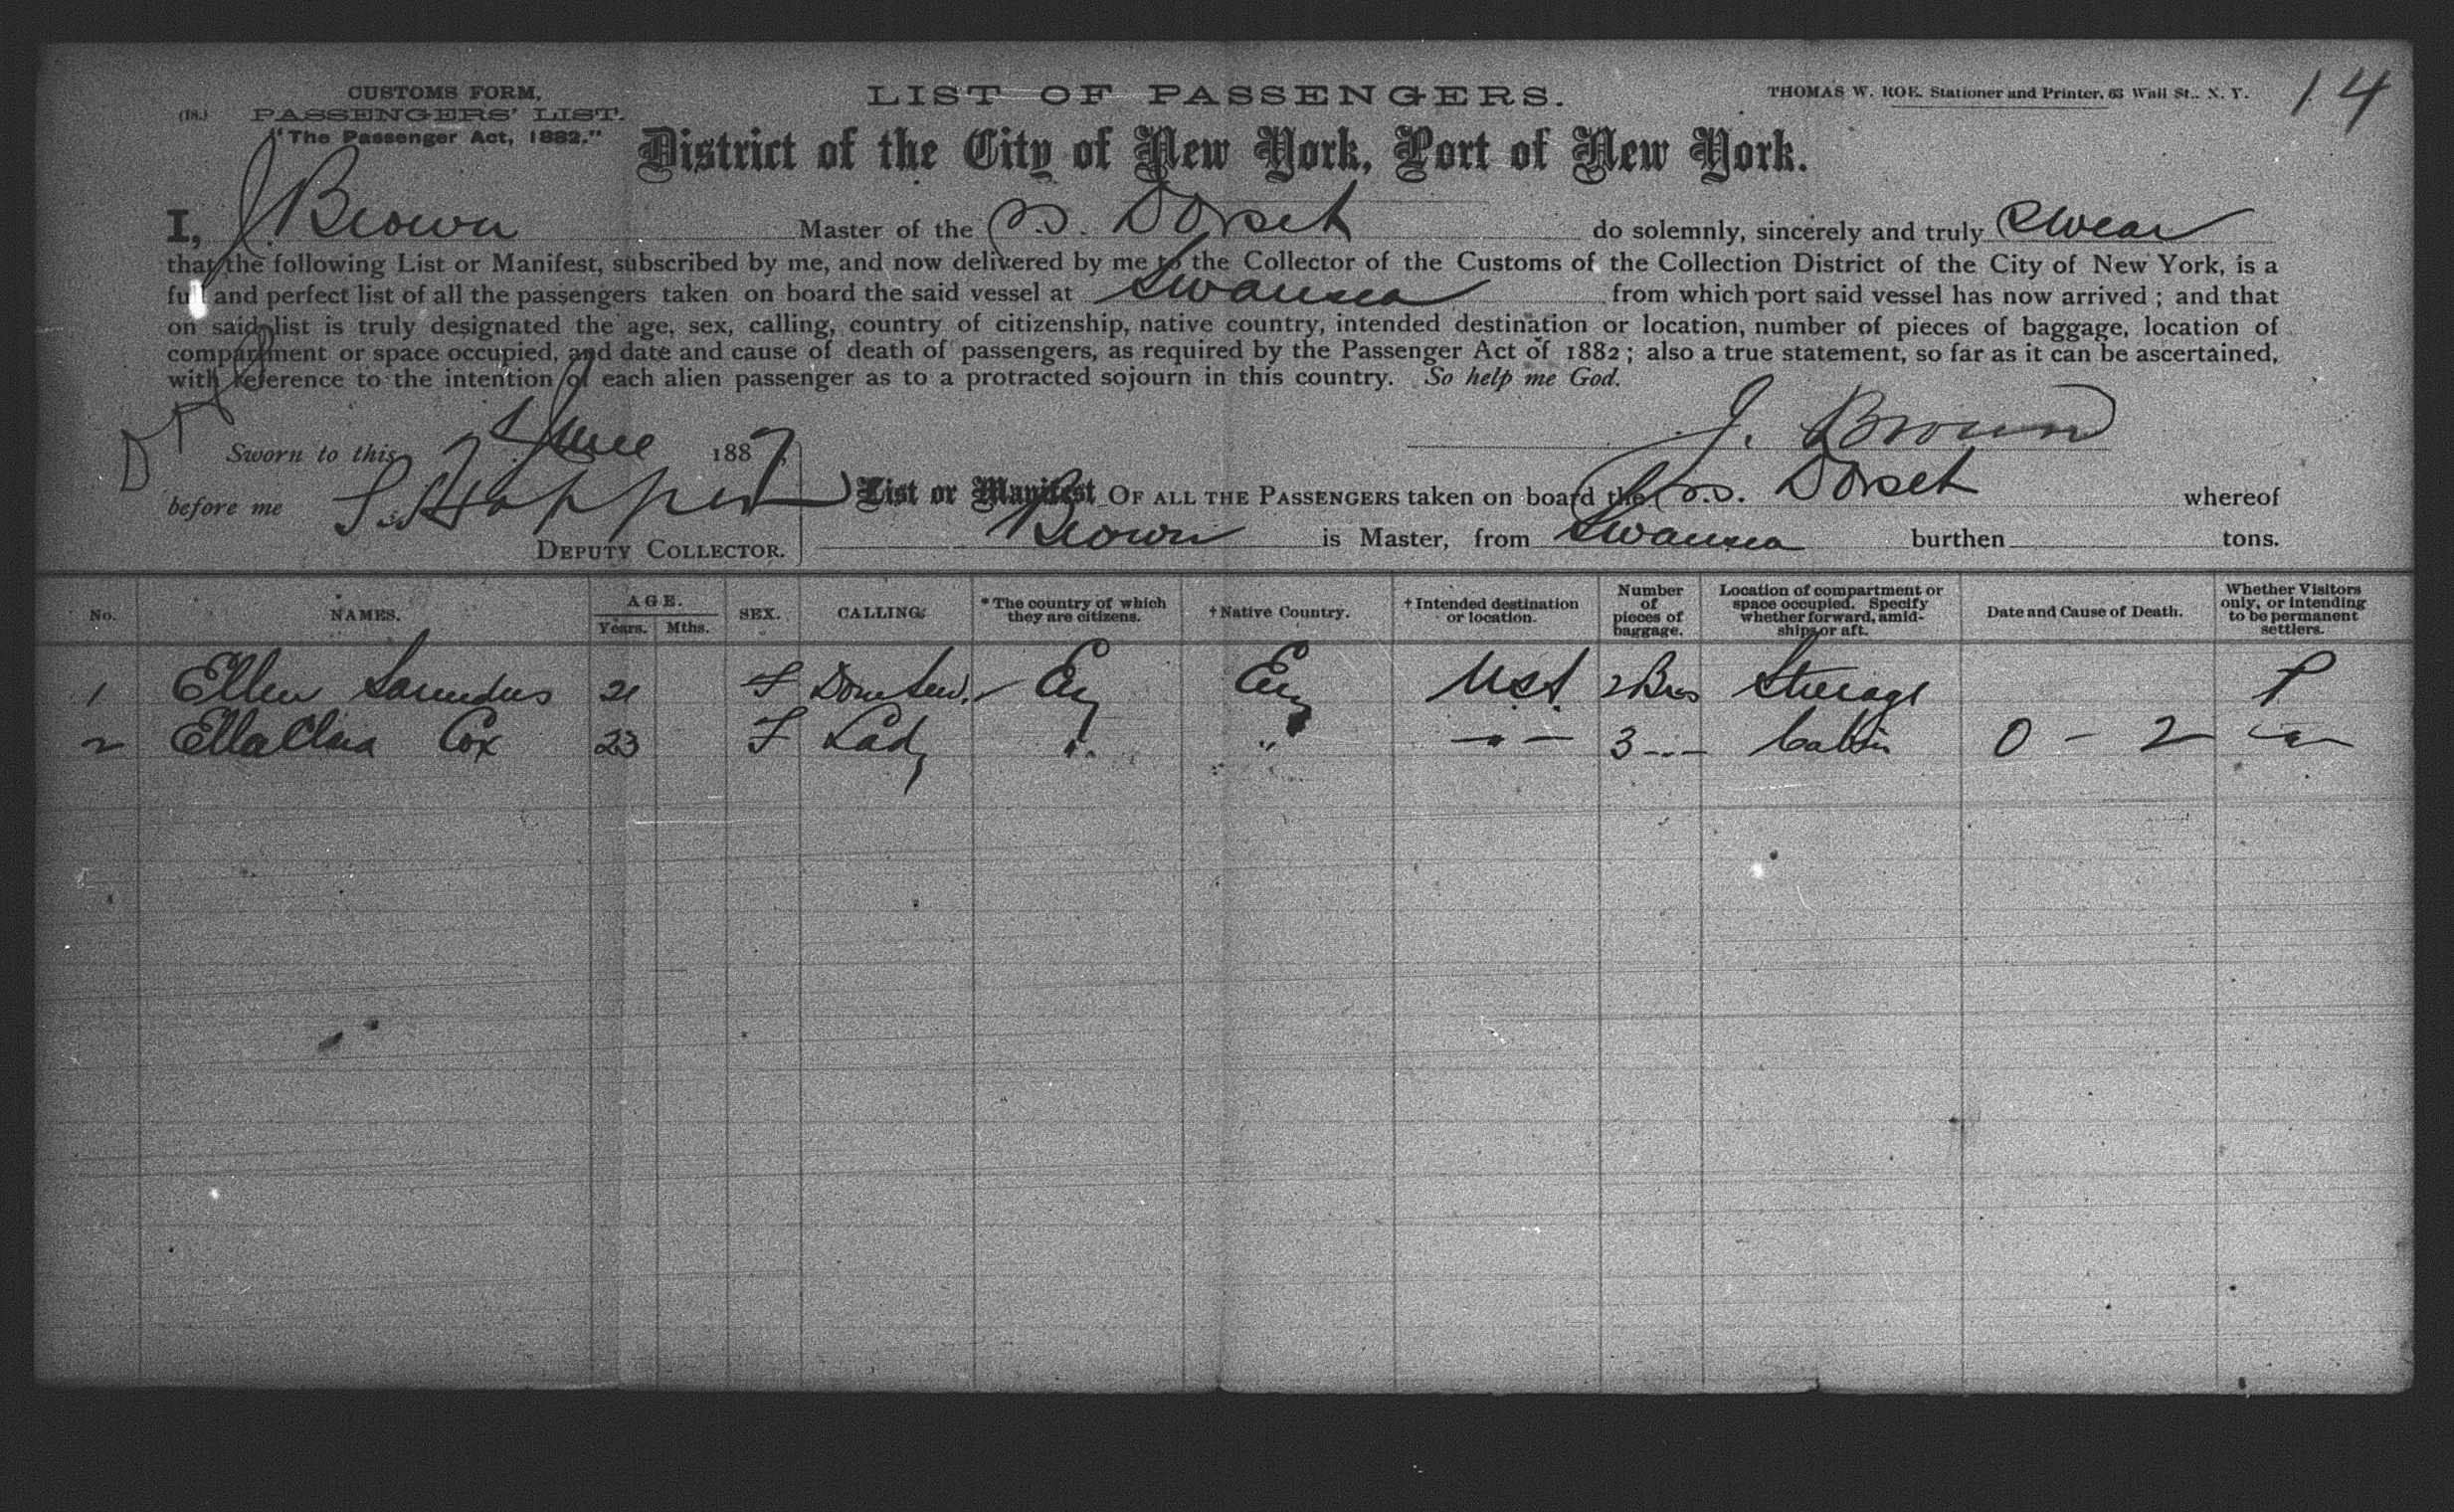 CUSTOMS FORM,
(18.) PASSENGERS' LIST.
"The Passenger Act, 1882."
LIST OF PASSENGERS.
THOMAS W. ROE. Stationer and Printer, 63 Wall St.. N. Y.
14
District of the City of New York, Port of New York.
I, J. Brown Master of the S.S. Dorset do solemnly, sincerely and truly swear
that the following List or Manifest, subscribed by me, and now delivered by me to the Collector of the Customs of the Collection District of the City of New York, is a
full and perfect list of all the passengers taken on board the said vessel at Swansea from which port said vessel has now arrived; and that
on said list is truly designated the age, sex, calling, country of citizenship, native country, intended destination or location, number of pieces of baggage, location of
compartment or space occupied, and date and cause of death of passengers, as required by the Passenger Act of 1882; also a true statement, so far as it can be ascertained,
with reference to the intention of each alien passenger as to a protracted sojourn in this country. So help me God.
J. Brown
Sworn to this June 1887,
before me
DEPUTY COLLECTOR.
List or Manifest OF ALL THE PASSENGERS taken on board the S.S. Dorset whereof
Brown is Master, from Swansea burthen tons.
No. NAMES. AGE. Years. Mths. SEX. CALLING. * The country of which they are citizens. † Native Country. † Intended destination or location. Number of pieces of baggage. Location of compartment or space occupied. Specify whether forward, amidships or aft. Date and Cause of Death. Whether Visitors only, or intending to be permanent settlers.
1 Ellen Saunders 21 F Dom Serv. Eng Eng U.S.A. 2 Steerage P
2 Ella Clara Cox 23 F Lady " " - " - 3 Cabin 0 - 2 - " -